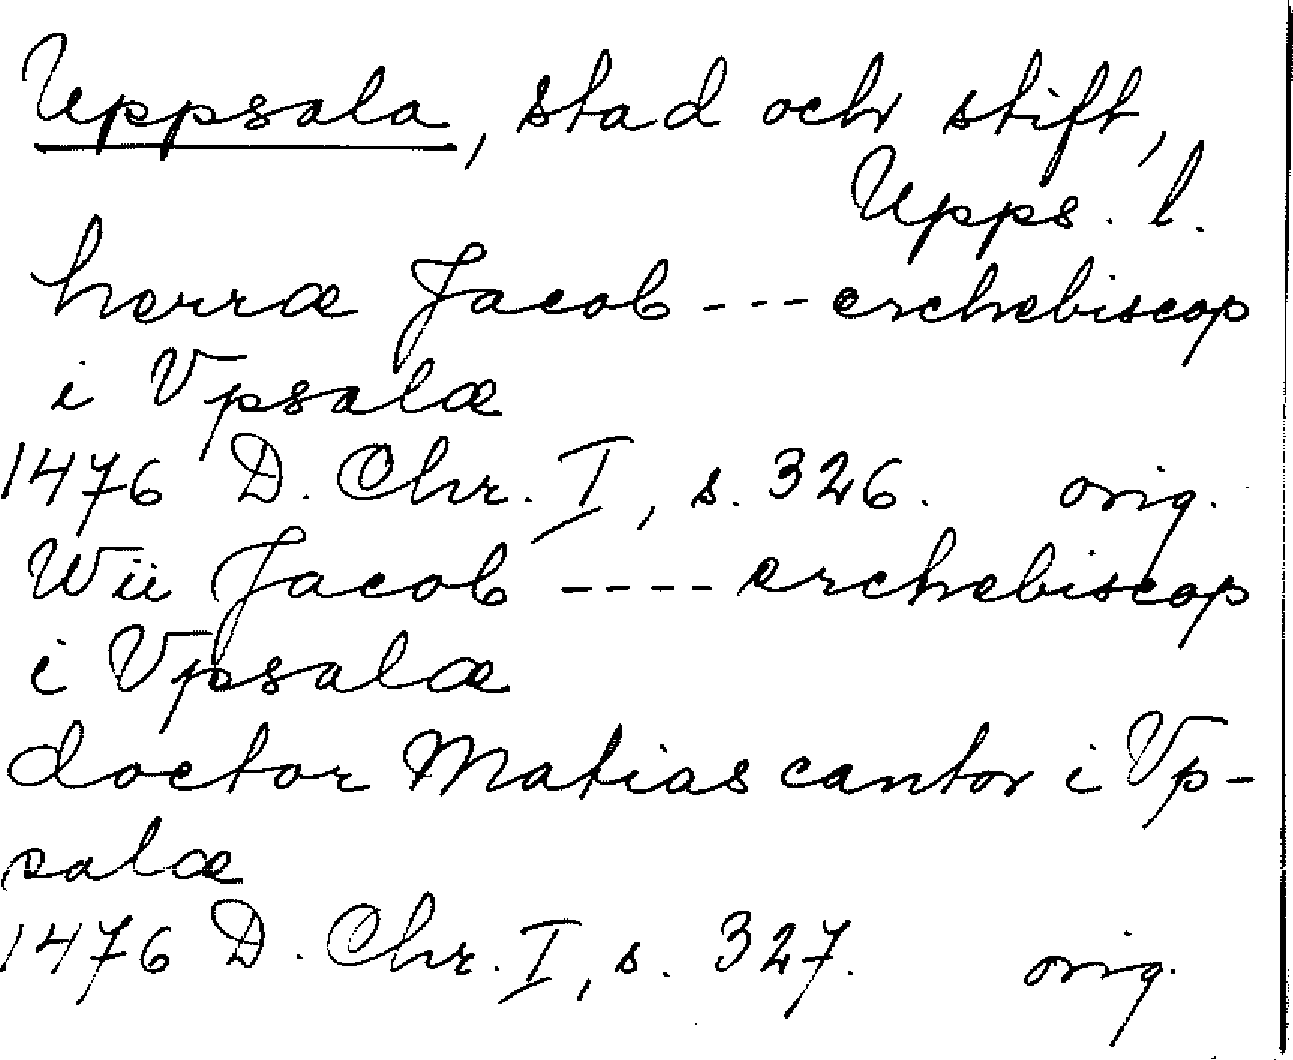 Uppsala, stad och stift,
Upps. l.
herræ Jacob --- erchebiscop
i Vpsalæ
1476 D. Chr. I, s. 326. orig.
Wii Jacob ---- erchebiscop
i Vpsalæ
doctor Matias cantor i Vp-
salæ
1476 D. Chr. I, s. 327. orig.